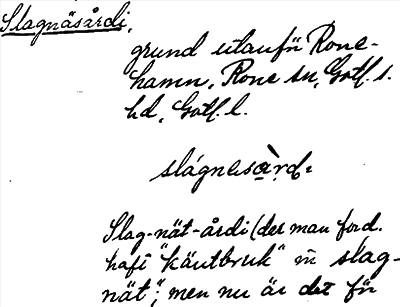 Slagnäsårdi,
grund utanför Rone-
hamn, Rone sn, Gotl. s.
hd, Gotl. l.
slágnesàrd
Slag-nät-årdi (der man ford.
haft "käutbruk" m slag-
nät"; men nu är det för